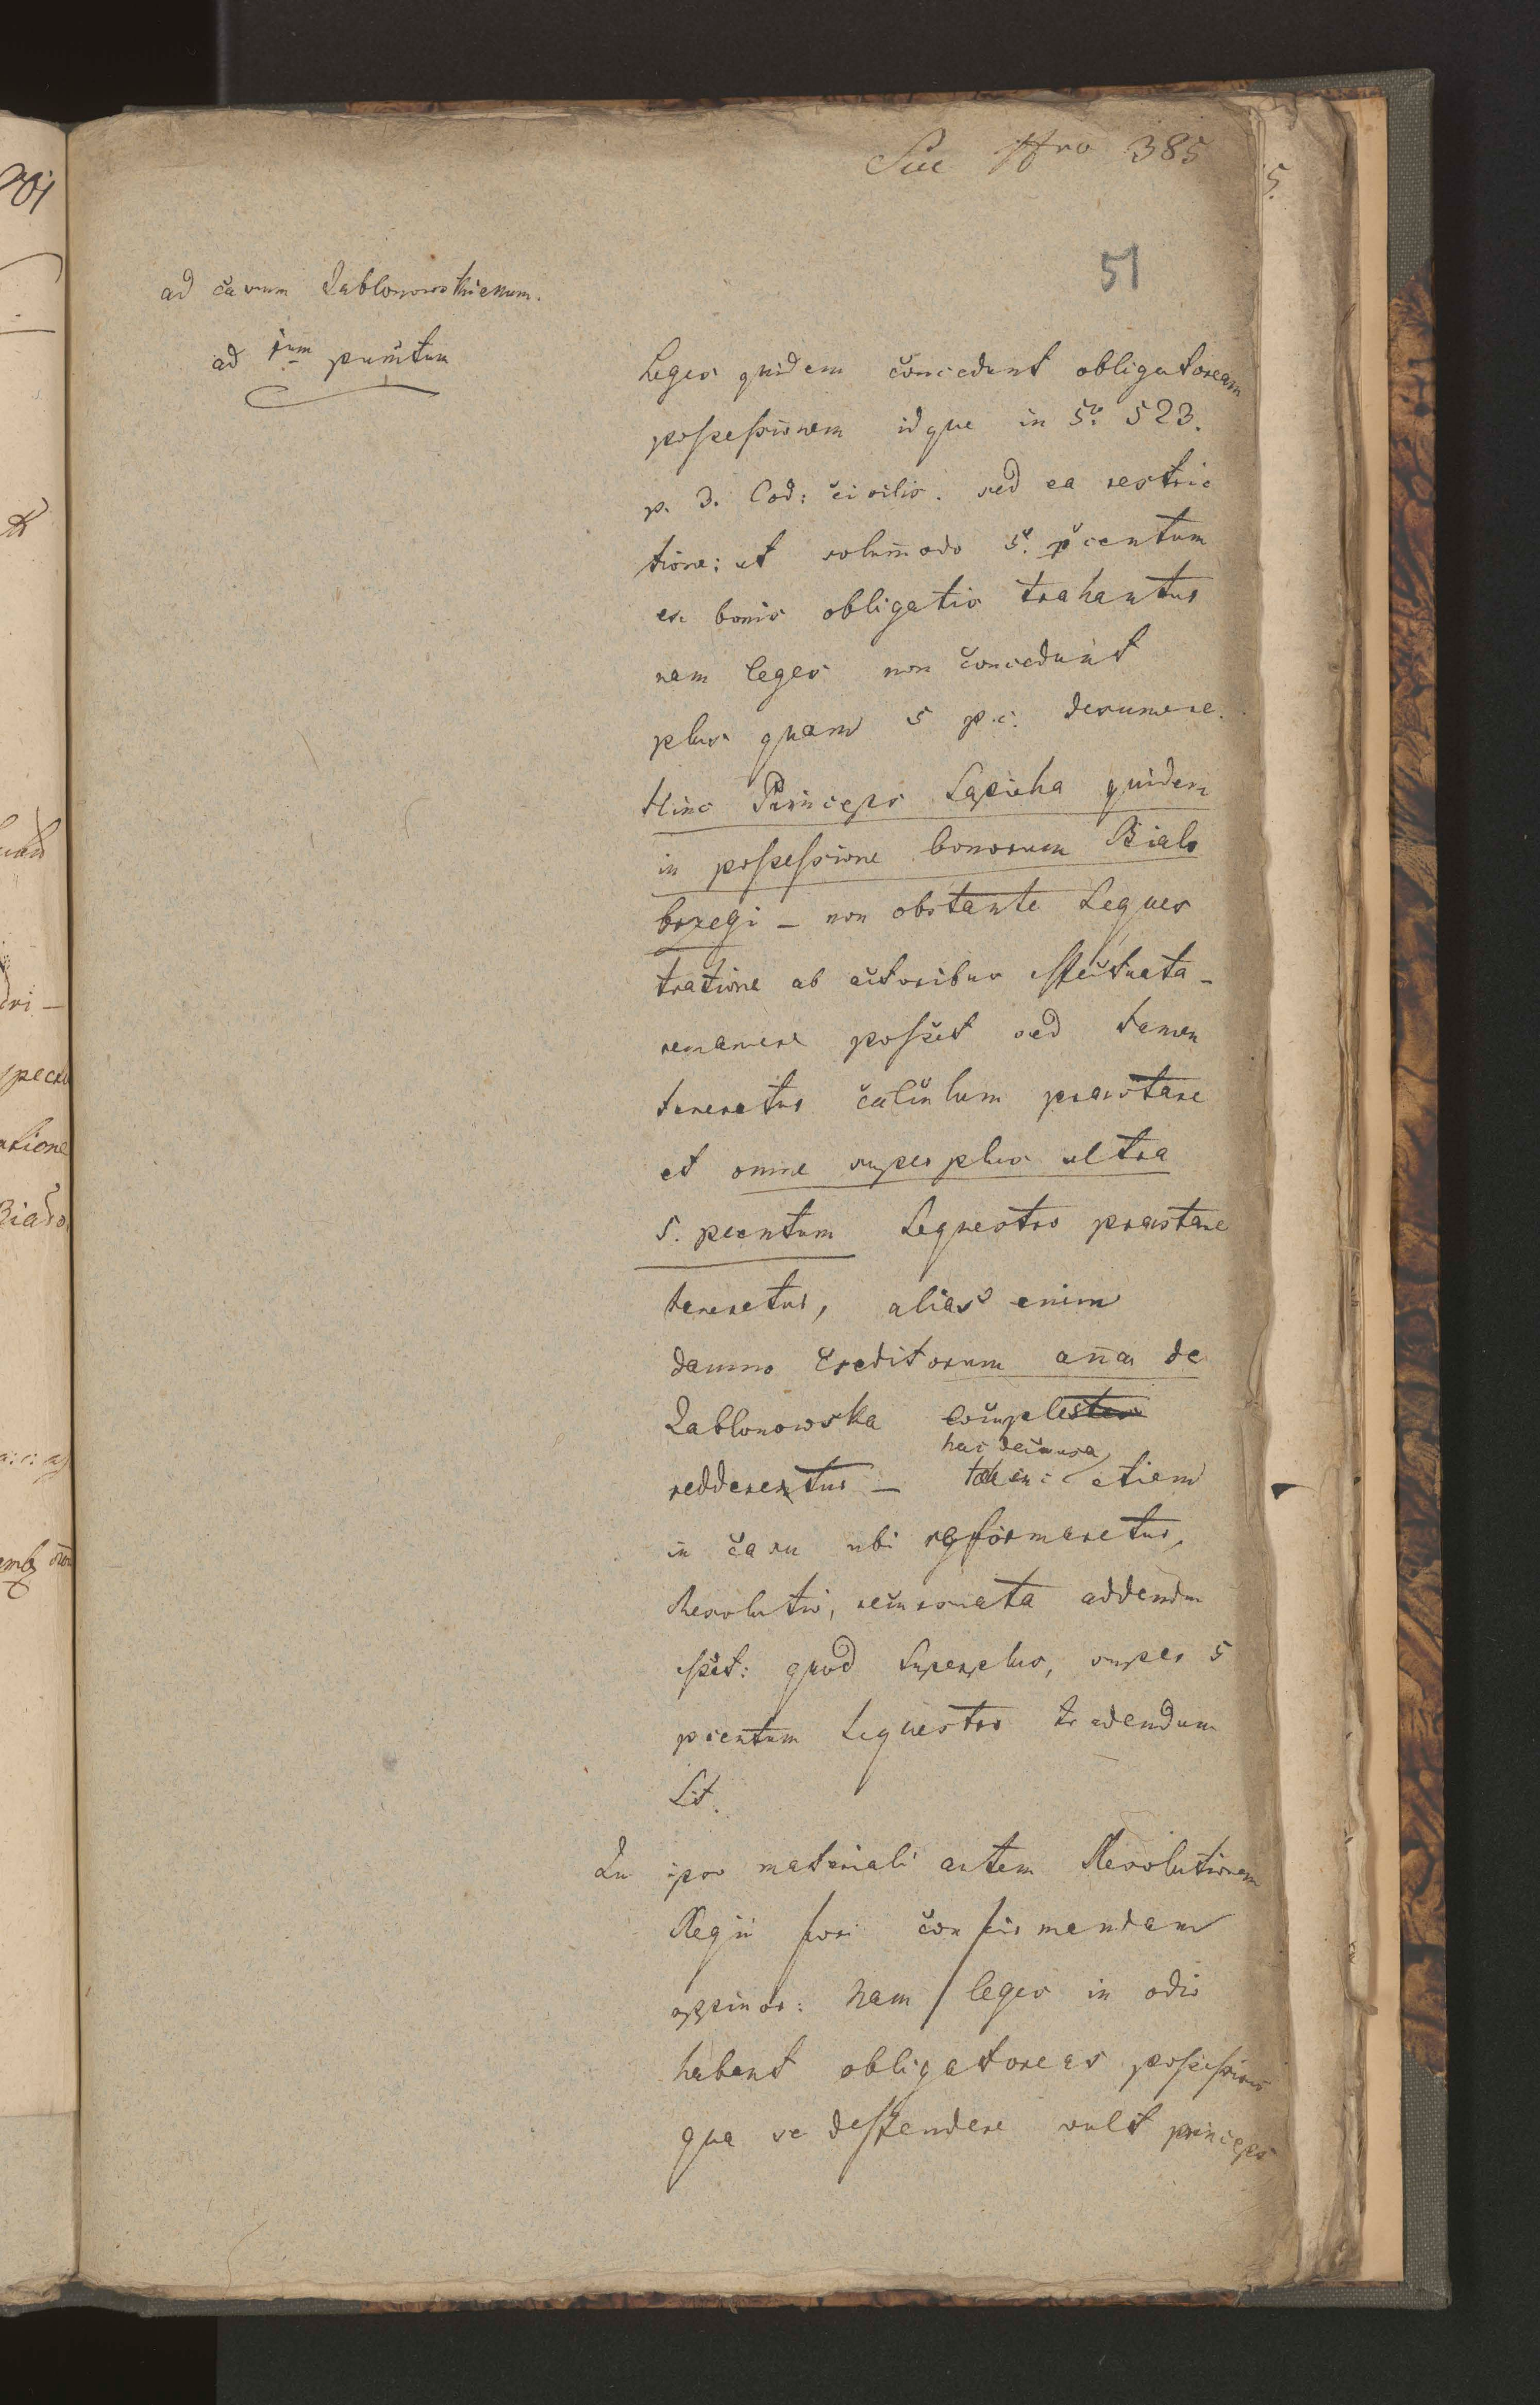 Nro 385
51
ad casum Jablonowskienum.
ad 1um punctum
Leges quidem concedunt obligatoream
possessionem idque in §o 523.
p. 3. Cod: civilis. sed ea restric
tione: ut solummodo 5. pcentum
ex bonis obligatis trahantur
nam leges non concedunt
plus quam 5 p.c. desumere.
Hinc Princeps Sapieha quidem
in possessione bonorum Bialo
brzegi – non obstante Seques
tratione ab actoribus effectuata –
remanere posset sed tamen
teneretur calculum praestare
et omne superplus ultra
5. pcentum Sequestro praestare
teneretur, alias enim
damno Creditorum anna de
Jablonowska
redderetur – hac de causa etiam
in casu ubi reformaretur,
Resolutio, recursuata addendum
esset: quod Superplus, super 5
pcentum Sequestro tradendum
Sit.
In ipso materiali autem Resolutionem
Regii fori confirmandam
oppinor: nam leges in odio
habent obligatoreas possessiones
qua se deffendere vult princeps